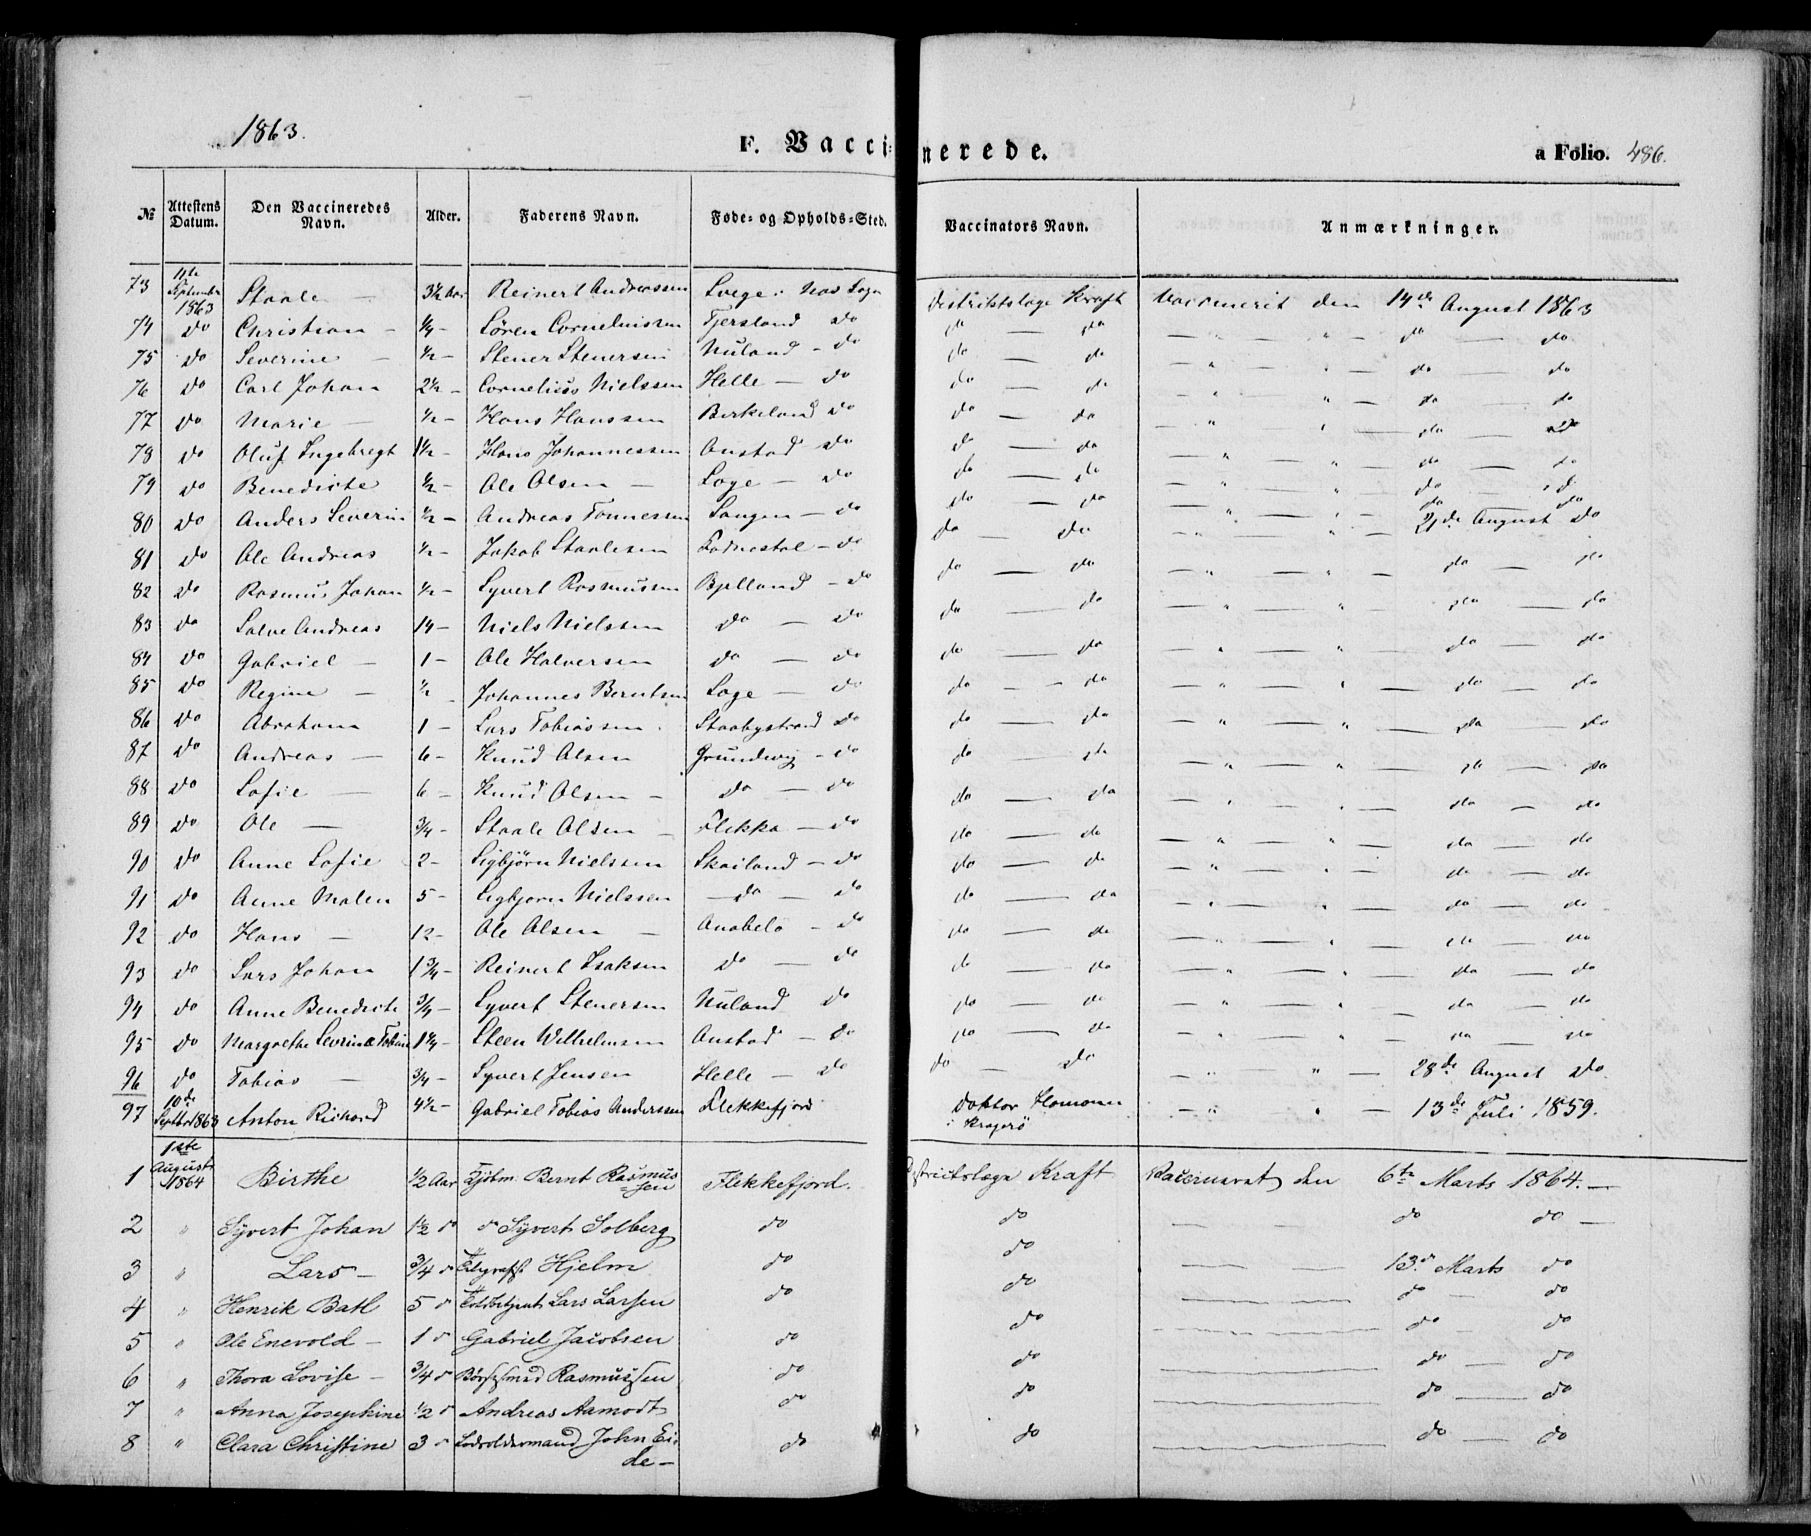 1863.
F. Vaccinerede.
a Folio. 486.
№ Attestens Datum. Den Vaccineredes Navn. Alder. Faderens Navn. Føde- og Opholds-Sted. Vaccinators Navn. Anmærkninger.
73 11te September 1863 Staale — 3½ Aar Reinert Andreassen Svege i Næs Sogn Distriktslæge Kraft Vaccinerit den 14de August 1863
74 do Christian — ¼ — Sören Corneliussen Tjersland do do — do — " — " — do — do
75 do Severine — ½ — Stener Stenersen Nuland - do do — do — " — " — do — do
76 do Carl Johan 2½ — Cornelius Nielssen Helle — do do — do — " — " — do — do
77 do Marie — ½ — Hans Hanssen Birkeland do do — do — " — " — do — do
78 do Oluf Ingebregt 1½ — Hans Johannessen Anstad — do do — do — " — " — do — do
79 do Benedicte ½ — Ole Olsen — Loge — do do — do — " — " — do — do
80 do Anders Severin ½ — Andreas Tønnessen Langen — do do — do — " — " — do — do
81 do Ole Andreas ½ — Jakob Staalesen — do do — do — " — " — 21de August do
82 do Rasmus Johan ½ — Syvert Rasmussen Bjelland — do do — do — " — " — do — do
83 do Salve Andreas 14 — Niels Nielssen do — do do — do — " — " — do — do
84 do Gabriel — 1 — Ole Halversen do — do do — do — " — " — do — do
85 do Regine — ½ — Johannes Berntsen Loge — do do — do — " — " — do — do
86 do Abraham 1 — Lars Tobiassen Staabystrand do do — do — " — " — do — do
87 do Andreas — 6 — Knud Olsen Grundevig — do do — do — " — " — do — do
88 do Sofie — 6 — Knud Olsen — do — do do — do — " — " — do — do
89 do Ole — ¾ — Staale Olsen — Flikka — do do — do — " — " — do — do
90 do Anne Sofie 2 — Sigbjörn Nielssen Skailand — do do — do — " — " — do — do
91 do Anne Malen 5 — Sigbjorn Nielssen — do — do do — do — " — " — do — do
92 do Hans — 12 — Ole Olsen — Anabelo — do do — do — " — " — do — do
93 do Lars Johan 1¾ — Reinert Isaksen do — do do — do — " — " — do — do
94 do Anne Benedicte ¾ — Syvert Stenersen Nuland do do — do — " — " — do — do
95 do Margrethe Severine Tobine 1¼ — Steen Wilhelmsen Anstad — do do — do — " — " — do — do
96 do Tobias — ¾ — Syvert Jensen Helle — do do — do — " — " — 28de August do
97 10de Septbr 1863 Anton Richard 4½ — Gabriel Tobias Anderssen Flekkefjord Doktor Homann i Kragerö — " — " — 13de Juli 1859.
1 1ste August 1864 Birthe ½ Aar Bernt Rasmussen Flekkefjord. Kraft Vaccineret den 6te Marts 1864. —
2 " Syvert Johan 1½ do do Syvert Solberg do do — — — do do —
3 " Lars — ¾ do Hjelm do do — — — 13de Marts do
4 " Henrik Batl 5 do Toldbetjent Lars Larsen do do — — — do — do
5 " Ole Enevold — 1 do Gabriel Jacobsen do do — — — do — do
6 " Thora Lovise — ¾ do Rasmussen do do — — — do — do
7 " Anna Josephine ½ do Andreas Aamodt do do — — — do — do
8 " Clara Christine 3 do John Eide — do do — — — do — do